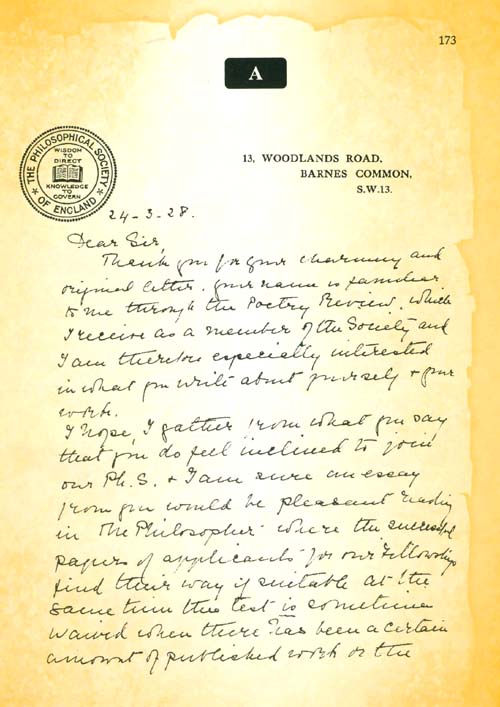 173
A
THE PHILOSOPHICAL SOCIETY OF ENGLAND
WISDOM
TO
DIRECT
KNOWLEDGE
TO
GOVERN
13, WOODLANDS ROAD,
BARNES COMMON,
S.W.13.
24-3-28.
Dear Sir,
Thank you for your charming and
original letter. Your name is familiar
to me through the Poetry Review, which
I receive as a member of the Society and
I am therefore especially interested
in what you write about yourself & your
work.
I hope, I gather from what you say
that you do feel inclined to join
our Ph. S. & I am sure an essay
from you would be pleasant reading
in The Philosopher where the successful
papers of applicants for our Fellowships
find their way if suitable at the
same time this test is sometimes
waived when there has been a certain
amount of published work or the